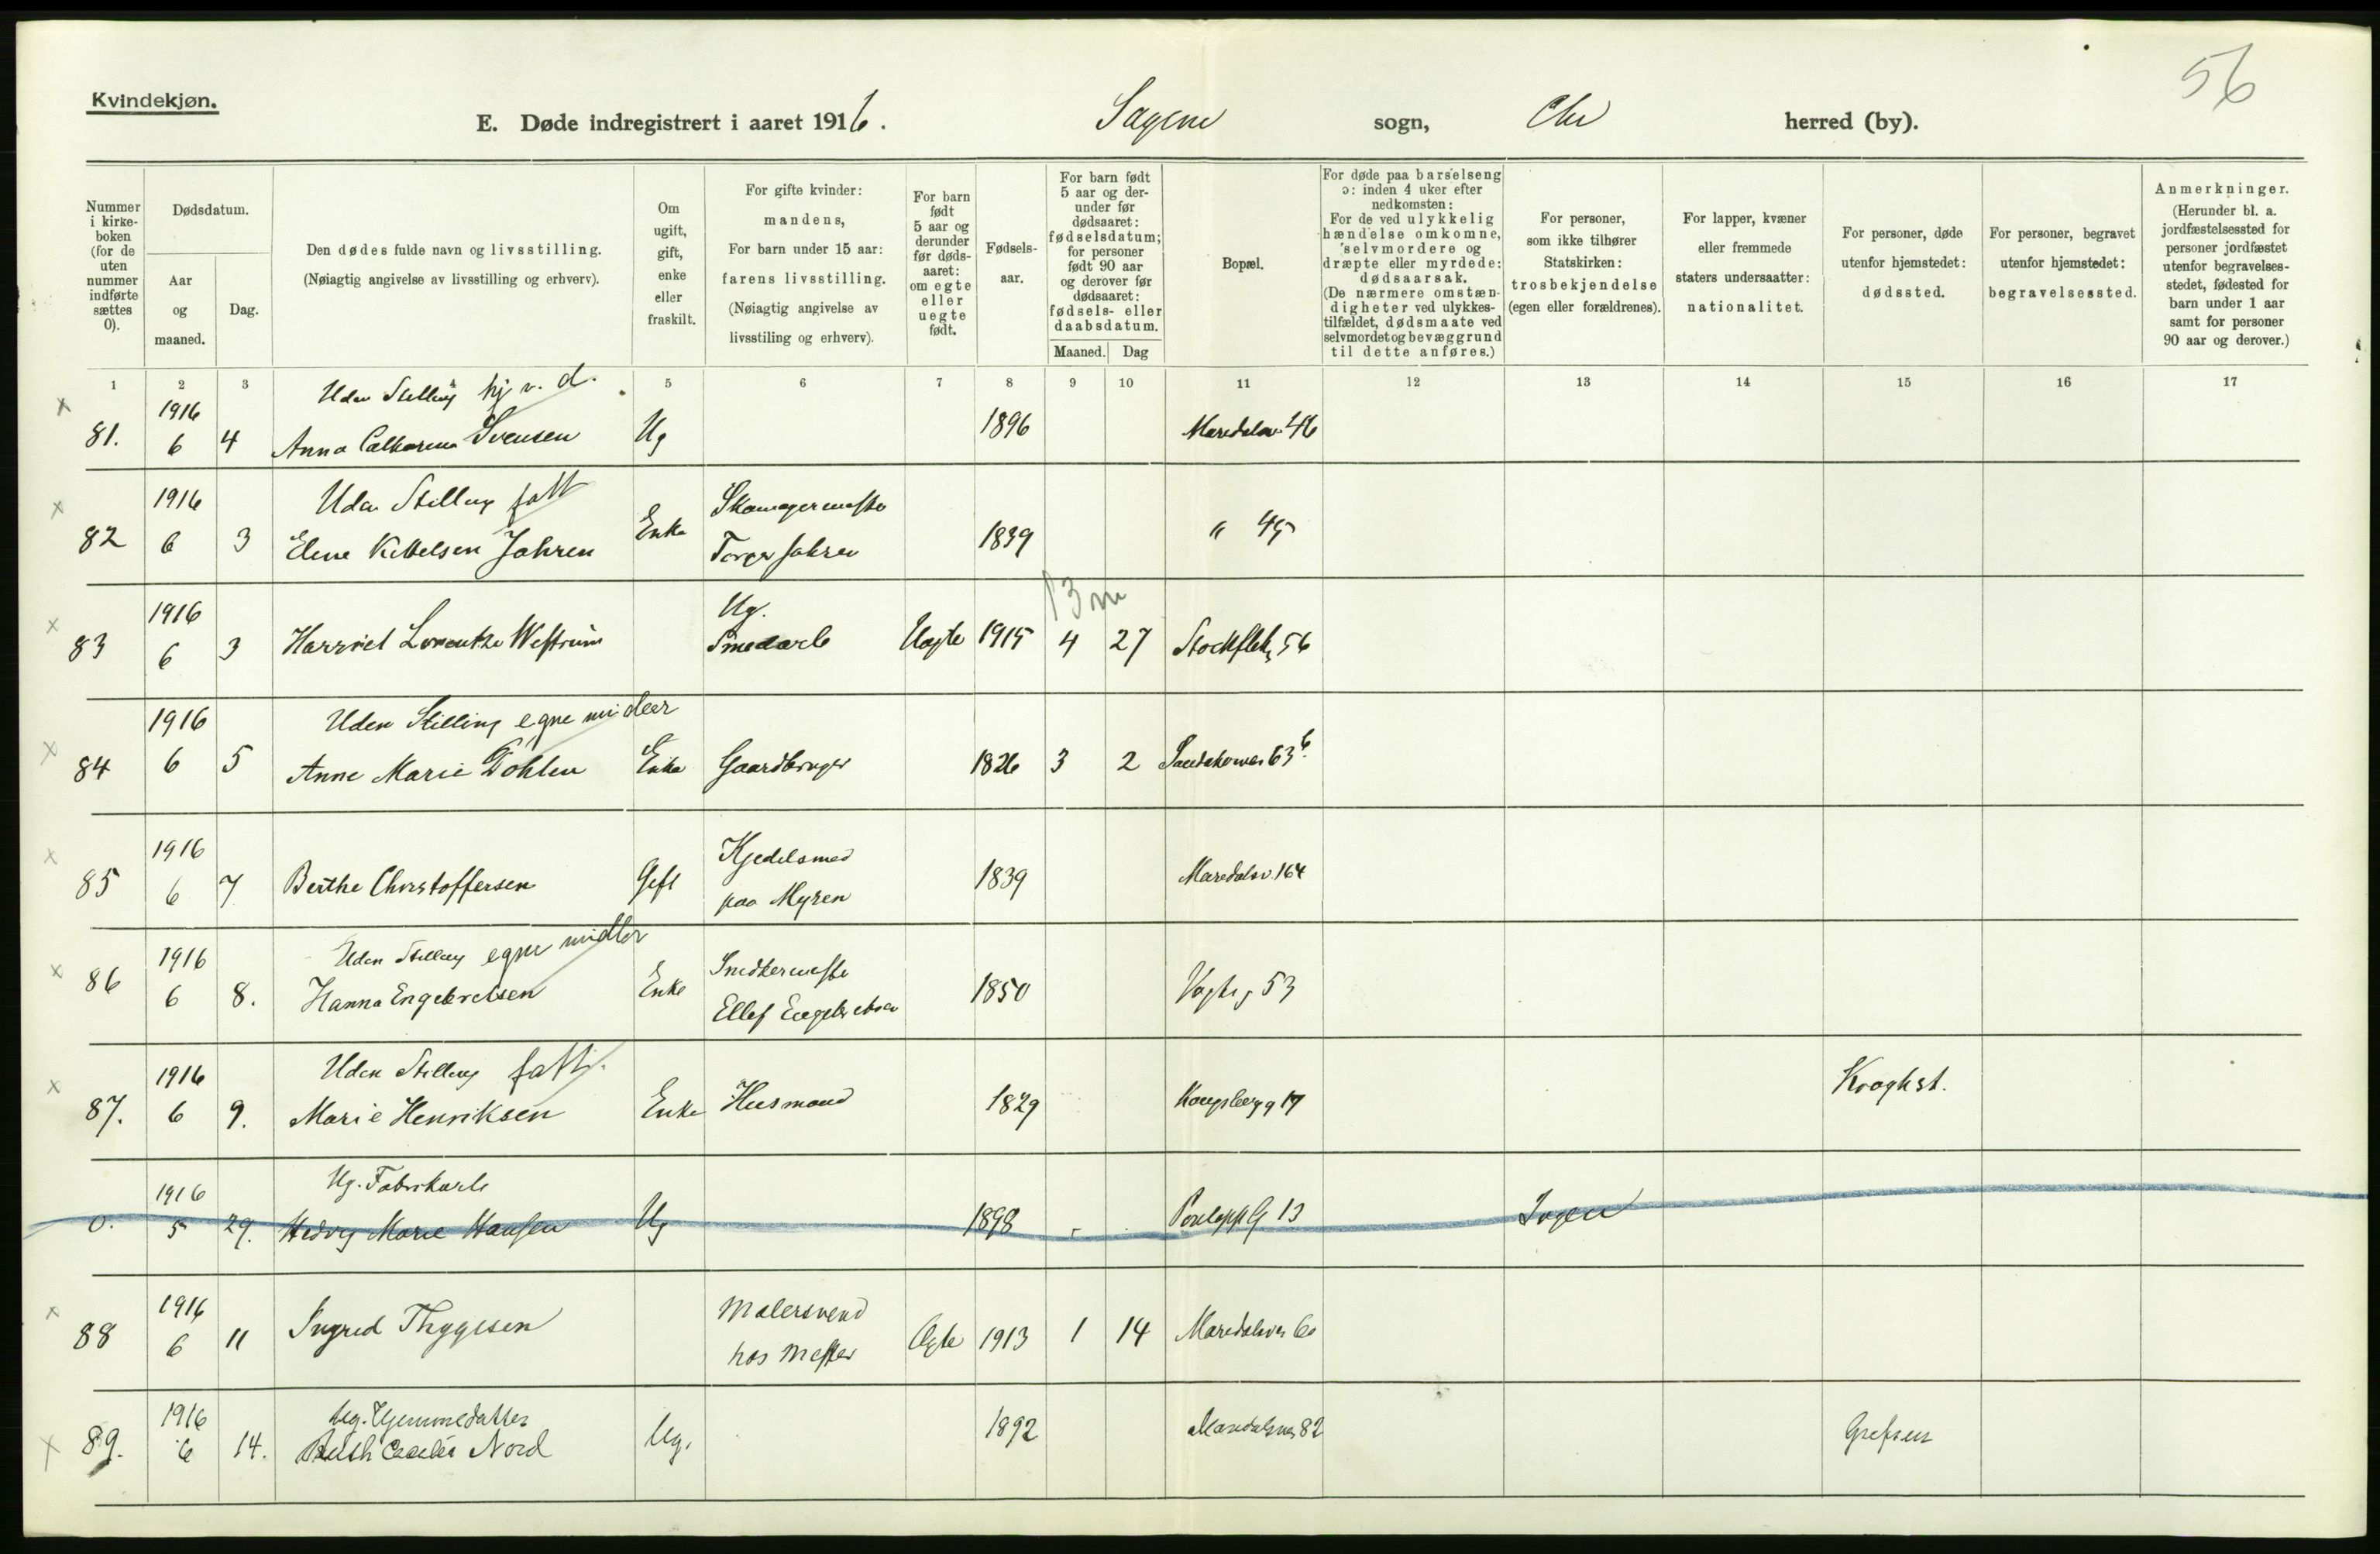 56
Kvindekjøn.
E. Døde indregistrert i aaret 1916. Sagene sogn, Chr herred (by).
Nummer i kirke-boken (for de uten nummer indførte sættes 0).
Dødsdatum.
Aar og maaned.
Dag.
Den dødes fulde navn og livsstilling.
(Nøiagtig angivelse av livsstilling og erhverv).
Om ugift, gift, enke eller fraskilt.
For gifte kvinder: mandens,
For barn under 15 aar: farens livsstilling.
(Nøiagtig angivelse av livsstiling og erhverv).
For barn født 5 aar og derunder før døds-aaret: om egte eller uegte født.
Fødsels-aar.
For barn født 5 aar og der-under før dødsaaret: fødselsdatum; for personer født 90 aar og derover før dødsaaret: fødsels- eller daabsdatum.
Maaned. Dag
Bopæl.
For døde paa barselseng ɔ: inden 4 uker efter nedkomsten:
For de ved ulykkelig hændelse omkomne, selvmordere og dræpte eller myrdede: dødsaarsak.
(De nærmere omstæn-digheter ved ulykkes-tilfældet, dødsmaate ved selvmordet og bevæggrund til dette anføres.)
For personer, som ikke tilhører Statskirken: trosbekjendelse (egen eller forældrenes).
For lapper, kvæner eller fremmede staters undersaatter: nationalitet.
For personer, døde utenfor hjemstedet: dødssted.
For personer, begravet utenfor hjemstedet: begravelsessted.
Anmerkninger.
(Herunder bl. a. jordfæstelsessted for personer jordfæstet utenfor begravelses-stedet, fødested for barn under 1 aar samt for personer 90 aar og derover.)
1 2 3 5 6 7 8 9 10 11 12 13 14 15 16 17
x Uden Stilling hj v. d.
81. 1916 6 4 Anna Catharina Svensen Ug 1896 Maridalsv. 46
x Uden Stilling fatt Skomagermester
82 1916 6 3 Elene Kittelsen Jahren Enke Torger Jahren 1839 " 45
13 m
x Ug.
83 1916 6 3 Harriet Lorentze Westrum Smedarb Uegte 1915 4 27 Stockfletg 56
x Uden Stilling egne midler
84 1916 6 5 Anne Marie Dohlen Enke Gaardbruger 1826 3 2 Sandakerver 63 b.
x Kjedelsmed
85 1916 6 7 Berthe Christoffersen Gift paa Myren 1839 Maridalsv. 164
x Uden Stilling egne midler Snedkermester
86 1916 6 8. Hanna Engebretsen Enke Ellef Engebretsen 1850 Vogts g 53
x Uden Stilling fatt.
87. 1916 6 9. Marie Henriksen Enke Husmand 1829 Kongsbergg 17 Kroghst.
Ug. Fabrikarb
0. 1916 5 29. Hedvig Marie Hansen Ug 1898 13 Ingen
x Malersvend
88 1916 6 11 Ingrid Thygesen hos Mester Ægte 1913 1 14 Maridalsver 60
Ug. Hjemmedatter
x 89. 1916 6 14. Ruth Cecilie Nord Ug. 1892 Maridalsver 82 Grefsen